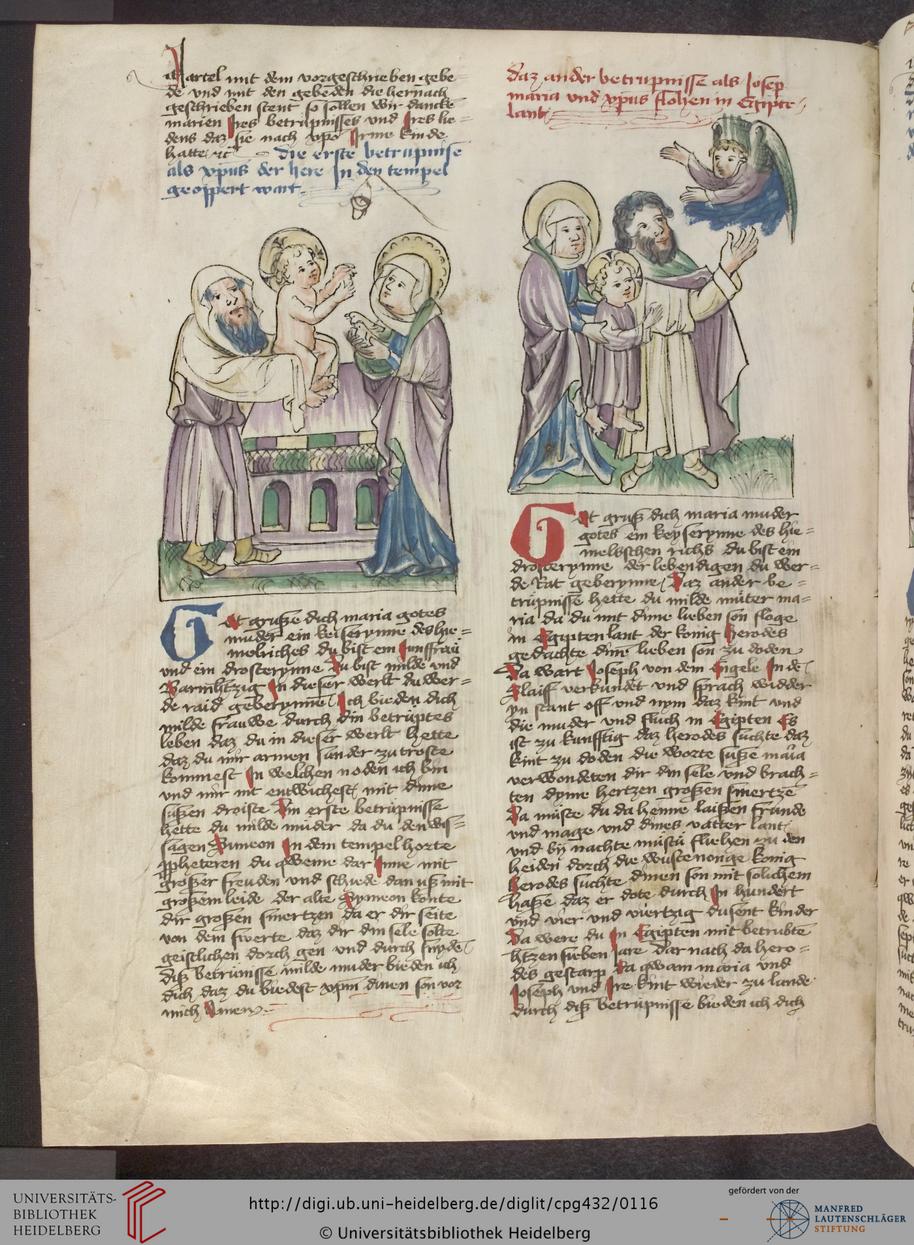 Partel mit dem vorgeschrieben gebe=
de vnd mit den gebeden die hernach
geschrieben stent so sollen wir dancke
marien Ires betrupnisses vnd Ires lie=
dens daz sie nach xpo Irme kinde
hatte etc Die erste betrupnise
als xpus der here In den tempel
geoppert wart
Got grusße dich maria gotes
muder ein keiserynne des hie=
melriches du bist ein Junffrau
vnd ein drosterynne Du bist milde vnd
Barmhtzig In dieser werlt du wer=
de raid geberynne Ich bieden dich
milde frauwe durch din betruptes
leben daz du in dieser werlt hette
daz du mir armen sunder zu troste
kommest In welchen noden ich bin
vnd mir nit entwichest mit dine
sußen droiste Din erste betrüpnisse
hette du milde müder da du den wis=
sagen Simeon In dem tempel horte
ppheteren du qweme dar Inne mit
großer freuden vnd schiede dan uß mit
großem leide der alte Symeon konte
dir großen smertzen da er dir seite
von dem swerte daz dir din sele solte
geistlichen dorch gen vnd durch snyde
diß betrunisse milde muder bieden ich
dich daz du biedest xpm dinen son vor
mich Amen
Daz ander betrupnisse als Josep
maria vnd xpus flohen in Egipte
lant
Got gruß dich maria muder
gotes ein keyserynne des hie=
melsschen richs du bist ein
drosterynne der lebendigen du wer=
de Rat geberynne Daz ander be=
trüpnisse hette du milde müter ma=
ria da du mit dime lieben son floge
in Egipten lant der konig Herodes
gedachte dine lieben son zu doden
Da wart Joseph von dem Engele In de
slaiff verkundet vnd sprach widder
yn stant off vnd nym daz kint vnd
die muder vnd fluch in Egipten Es
ist zu kunfftig daz herodes suchte daz
kint zu doden die worte suße maria
verwondeten dir din sele vnd brach=
ten dyme hertzen großen smertze
Da müste du da heime laißen frunde
vnd mage vnd dines vatter lant
vnd by nachte müstu fliehen zu den
heiden dorch die wustenonige konig
Herodes suchte dinen son mit solichem
haße daz er dote durch In hundert
vnd vier vnd viertzig dusent kinder
Da were du in Egipten mit betrubte
htzen sieben Jare Dar nach da hero=
des gestarp Da qwam maria vnd
Joseph vnd Ire kint wieder zu lande
durch diß betrupnisse bieden ich dich
UNIVERSITÄTS-
BIBLIOTHEK
HEIDELBERG
http://digi.ub.uni-heidelberg.de/diglit/cpg432/0116
© Universitätsbibliothek Heidelberg
gefördert von der
MANFRED
LAUTENSCHLÄGER
STIFTUNG